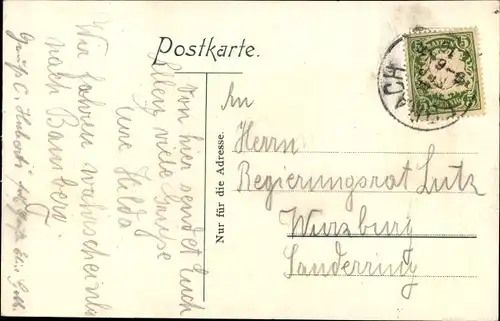 Postkarte.
Nur für die Adresse.
An
Herrn
Regierungsrat Lutz
Würzburg
Sanderring
Von hier sendet Euch
Allen viele Grüsse
Eure Hilda.
Wir fahren wahrscheinlich
nach Bamberg.
Gruß C.
ACH
5
5